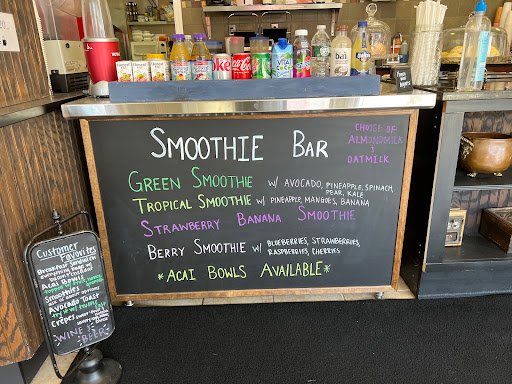 SMOOTHIE BAR
CHOICE OF
ALMONDMILK
&
OATMILK
GREEN SMOOTHIE W/ AVOCADO, PINEAPPLE, SPINACH,
PEAR, KALE
TROPICAL SMOOTHIE W/ PINEAPPLE, MANGOES, BANANA
STRAWBERRY BANANA SMOOTHIE
BERRY SMOOTHIE W/ BLUEBERRIES, STRAWBERRIES,
RASPBERRIES, CHERRIES
*ACAI BOWLS AVAILABLE*
Customer
Favorites
Breakfast Sandwich
Acai Bowl
Smoothies
Avocado Toast
Crêpes
WINE &
BEER
Coca-Cola
VITA
COCO
bai